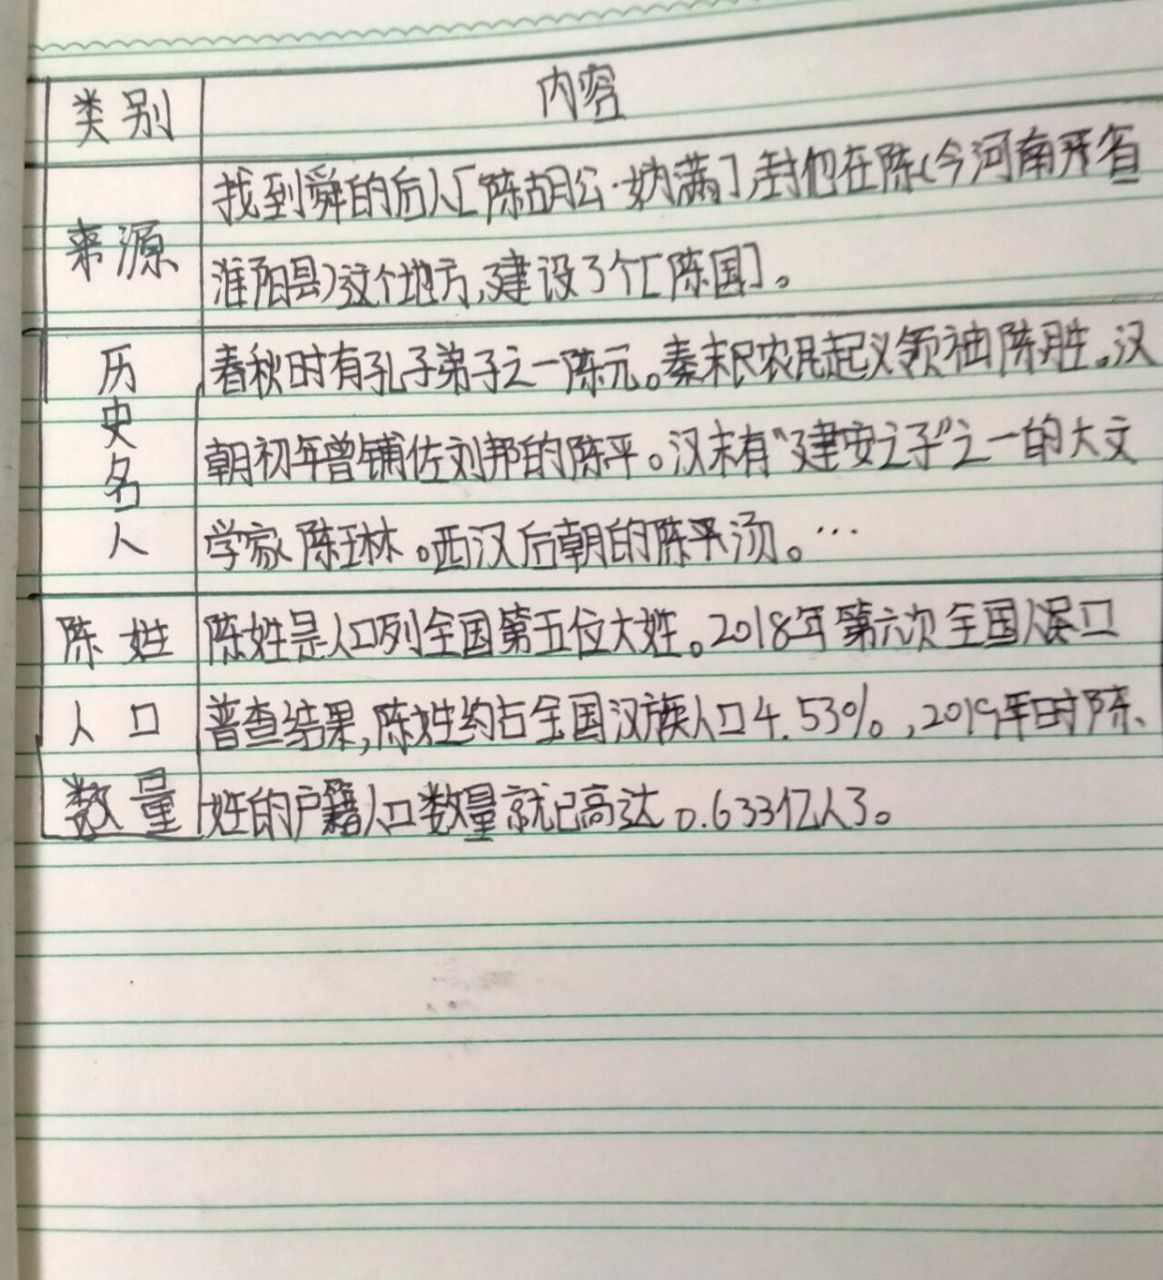 类别 内容
来源 找到舜的后人[陈胡公·妫满],封他在陈(今河南开省
淮阳县)这个地方,建设了个[陈国]。
历史名人 春秋时有孔子弟子之一陈元。秦末民农民起义领袖陈胜。汉
朝初年曾铺佐刘邦的陈平。汉末有“建安之子”之一的大文
学家陈琳。西汉后朝的陈平汤。…
陈姓 陈姓是人口列全国第五位大姓。2018年第六次全国人口
人口 普查结果,陈姓约占全国汉族人口4.53%。,2019年时陈、
数量 姓的户籍人口数量就已高达0.633亿人了。